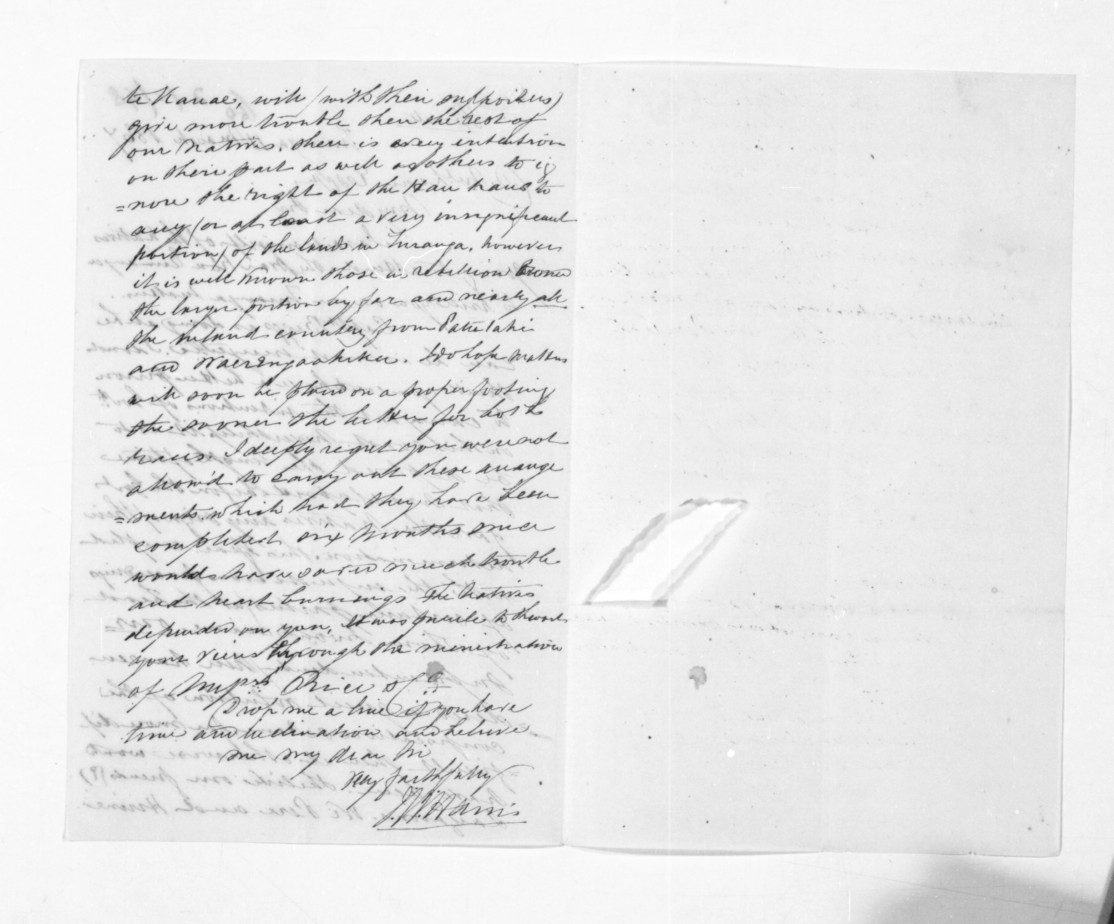 te Kanae, will (with their supporters)
give more trouble then the rest of
our natives. there is every intention
on their part as well as others to ig
=nore the right of the Hau haus to
any (or at least a very insignificant
portion) of the lands in Turanga, however
it is well known those in rebellion owned
the larger portion by far and nearly all
the inland country from Patutahi
and Waerengaahika. I do hope matters
will soon be placed on a proper footing
the sooner the better for both
races. I deeply regret you were not
allow'd to carry out these arrange
=ments. which had they have been
completed six months since
would have saved much trouble
and heart burnings The Natives
depended on you, it was puerile to thwart
your views through the ministration
of Messrs Price &Co
Drop me a line if you have
time and inclination and believe
me my dear Sir
very faithfully
J.W. Harris